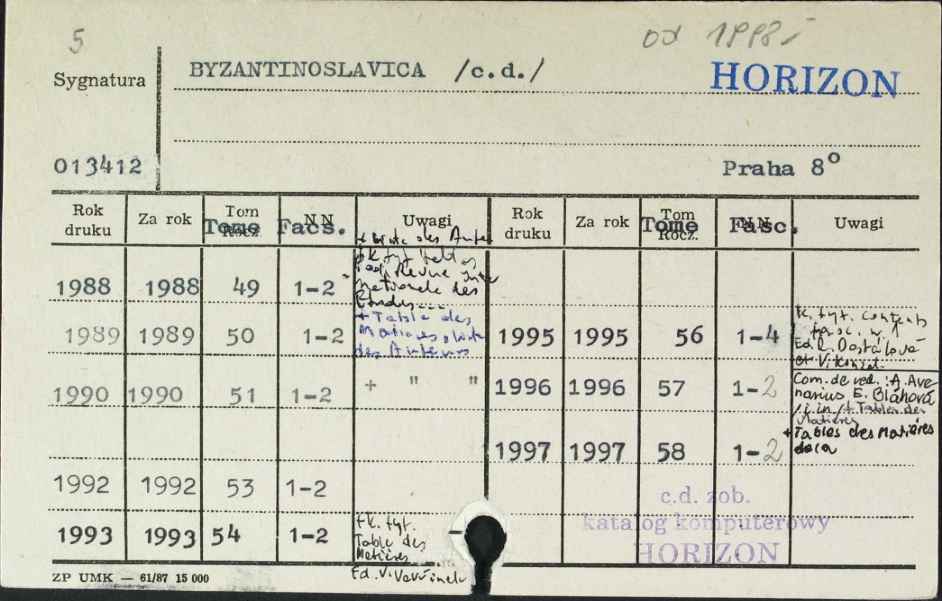 5
od 1998-
Sygnatura
BYZANTINOSLAVICA /c.d./
HORIZON
013412
Praha 8°
Rok druku Za rok Tom Rocz. Tome NN Facs. Uwagi Rok druku Za rok Tom Rocz. Tome NN Fasc. Uwagi
1988 1988 49 1-2
+ Table des
1989 1989 50 1-2
Matières
des Auteurs
1995 1995 56 1-4
tk. tyt. contents
1990 1990 51 1-2 + " "
1996 1996 57 1-2
Com. de red. : A. Ave
narius E. Bláhová
/i in/ + Tables des
Matières
1997 1997 58 1-2
+ Tables des Matières
1992 1992 53 1-2
1993 1993 54 1-2
tk. tyt.
Table des
Matières
c.d. zob.
katalog komputerowy
HORIZON
ZP UMK — 61/87 15 000